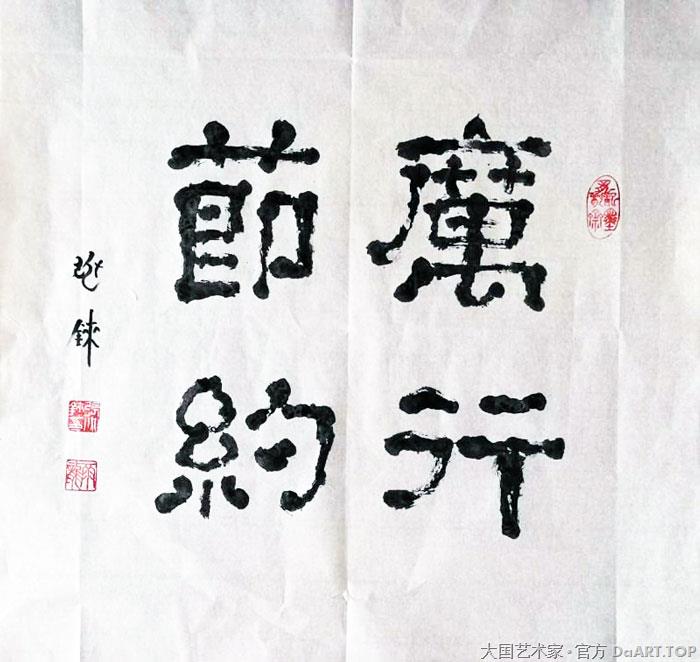 厲行
節約
大国艺术家·官方 DaART.TOP